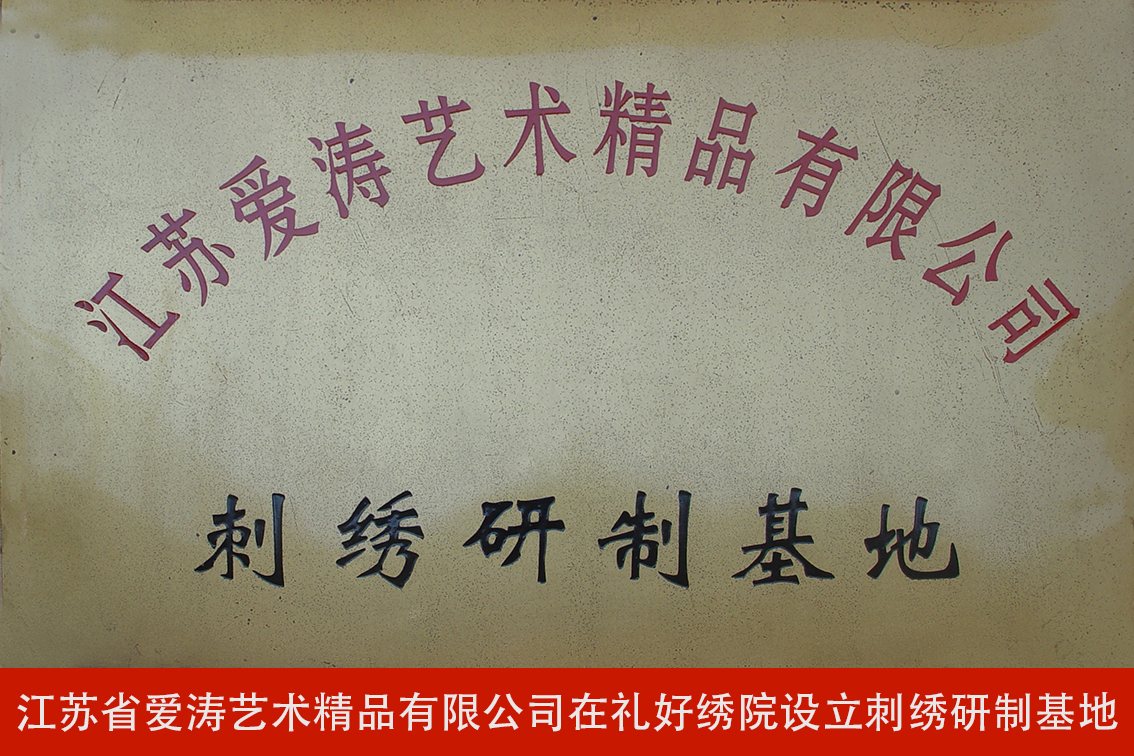 江苏爱涛艺术精品有限公司
刺绣研制基地
江苏省爱涛艺术精品有限公司在礼好绣院设立刺绣研制基地